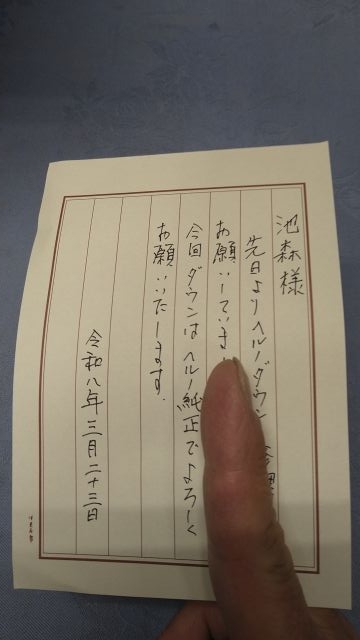 池森様
先日よりヘルノダウン
お願いしていま
今回ダウンはヘルノ純正でよろしく
お願いいたします.
令和八年三月二十三日